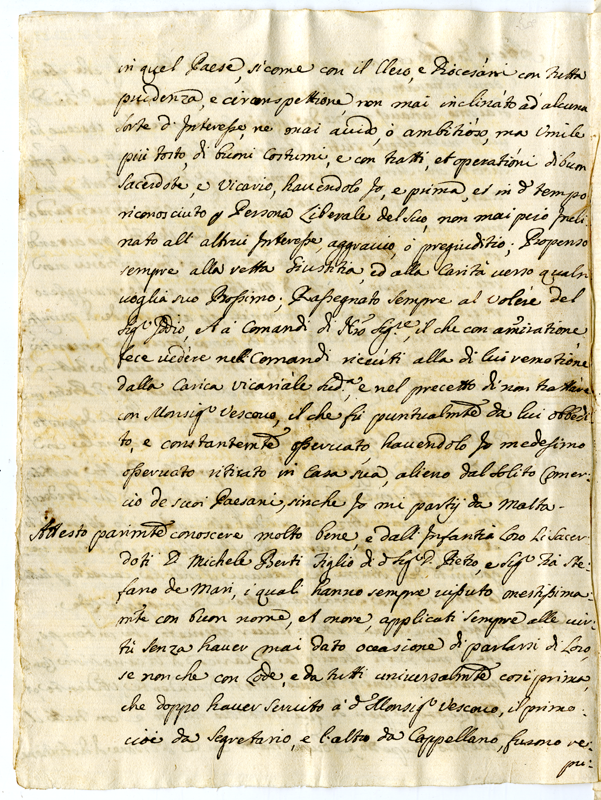 in quel Paese, sicome con il Clero, e Diocesani con tutta
prudenza, e circonspettione, non mai inclinato ad alcuna
sorte d'Interesse, ne mai auido, ò ambitioso, ma Umile
più tosto, di buoni Costumi, e con tratti, et operationi di buon
Sacerdote, e Vicario, havendolo Io, e prima, et in d.º tempo
riconosciuto p Persona Liberale del suo, non mai però Incli-
nato all'altrui Interesse, aggravio, ò pregiuditio; Propenso
sempre alla retta Giustitia, ed alla Carità verso qualsi-
voglia suo Prossimo; Rassegnato sempre al Volere del
Sig.r Iddio, et à i Comandi di N'ro Sig.re, il che con amiratione
fece vedere nelli Comandi ricevuti alla di lui remotione
dalla Carica Vicariale sud.a, e nel precetto di non trattare
con Monsig.r Vescovo, il che fù puntualm.te da lui obbedi-
to, e constantem.te osservato havendolo Io medesimo
osservato ritirato in Casa sua, alieno dal solito Comer-
cio de suoi Paesani, sinche Io mi partij da Malta-
Attesto parim.te conoscere molto bene, e dall'Infantia loro li Sacer-
doti D. Michele Berti figlio di d.º Sig.r D. Pietro, e Sig.r Frà Ste-
fano de Mari, i quali hanno sempre vissuto onestissima-
m.te con buon nome, et onore, applicati sempre alle vir-
tù senza haver mai dato occasione di parlarsi di Loro,
se non che con Lode, e da tutti universalm.te così prima,
che doppo haver servito à d.º Monsig.r Vescovo, il primo
cioè da Segretario, e l'altro da Cappellano, furono re-
pu-